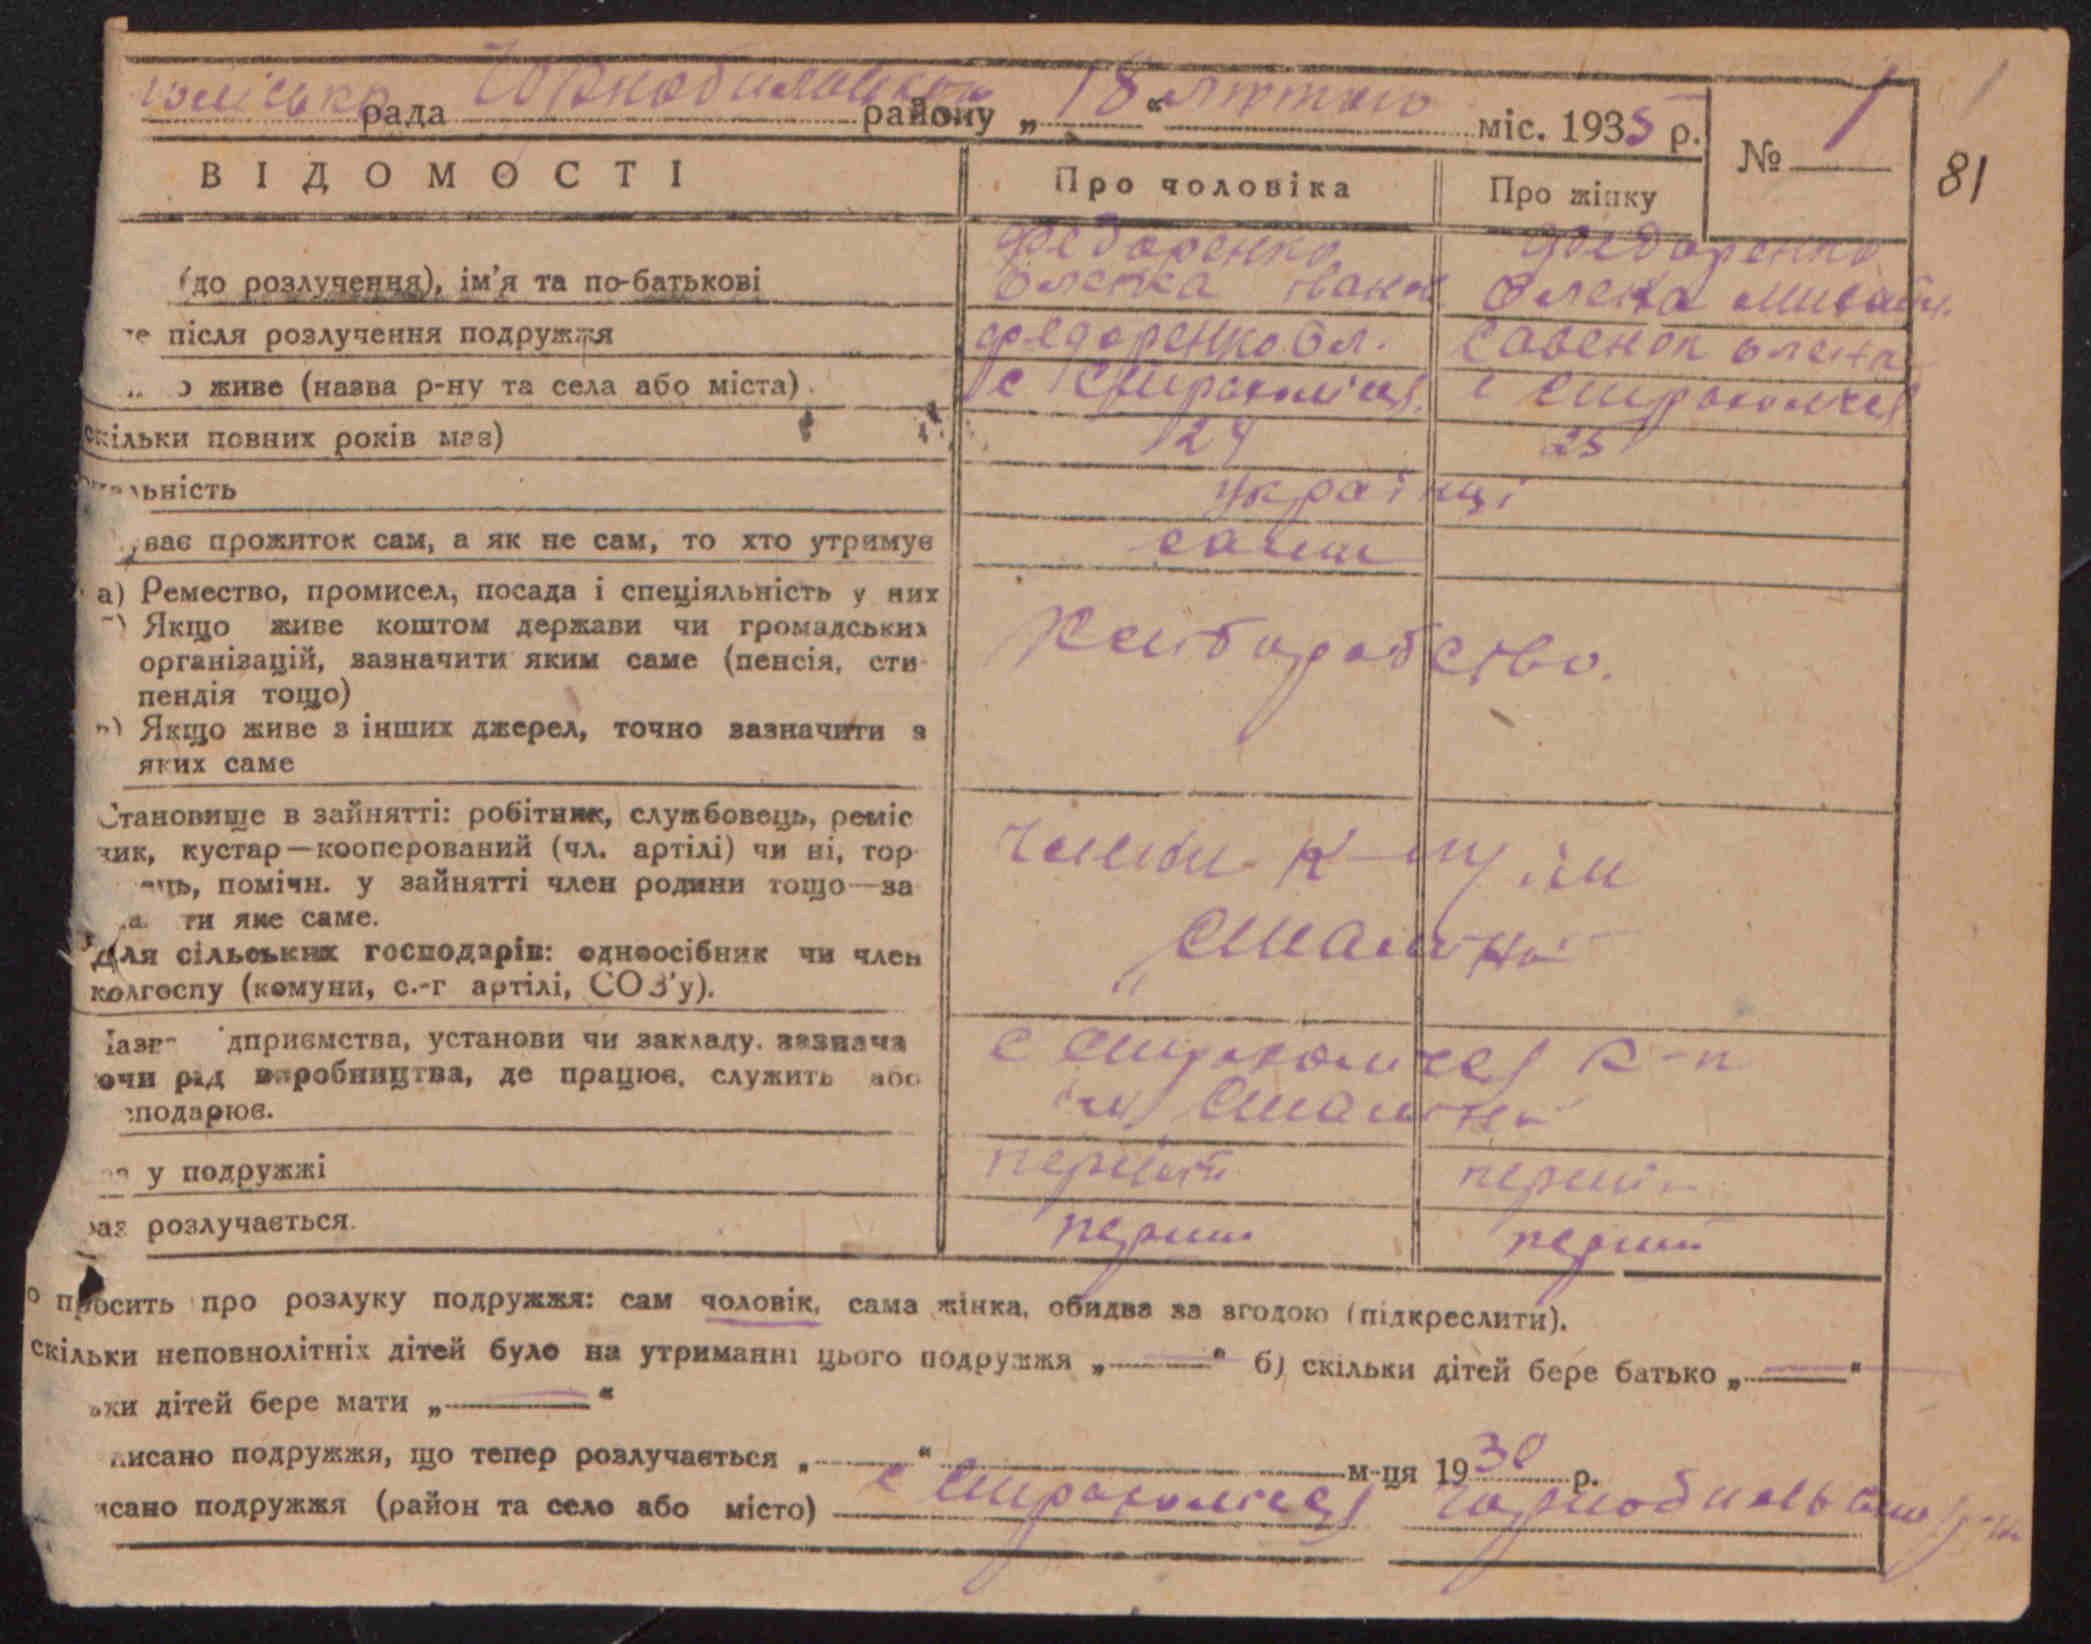 рада Чорнобильського району „18“ лютого міс. 1935 р.
№ 1
1
81
ВІДОМОСТІ
Про чоловіка
Про жінку
(до розлучення), ім'я та по-батькові
Федоренко
Федоренко
Олена
після розлучення подружжя
Федоренко Ол.
Савенок Олена
живе (назва р-ну та села або міста).
с
с
скільки повних років має)
25
українці
ває прожиток сам, а як не сам, то хто утримує
сами
а) Ремество, промисел, посада і спеціяльність у них
Якщо живе коштом держави чи громадських
організацій, зазначити яким саме (пенсія, сти-
пендія тощо)
Якщо живе з інших джерел, точно зазначити з
яких саме
Хліборобство.
Становище в зайнятті: робітник, службовець, реміс
ник, кустар—кооперований (чл. артілі) чи ні, тор-
помічн. у зайнятті член родини тощо—за
ти яке саме.
Для сільських господарів: одноосібник чи член
колгоспу (комуни, с.-г артілі, СОЗ'у).
члени к-пу ім
Сталіна
дприємства, установи чи закладу, зазнача
ючи рід виробництва, де працює, служить або
сподарює.
с к-п
ім Сталіна
у подружжі
перший
раз розлучається.
перший
перший
просить про розлуку подружжя: сам чоловік, сама жінка, обидва за згодою (підкреслити).
скільки неповнолітніх дітей було на утриманні цього подружжя „—“ б) скільки дітей бере батько „—“
дітей бере мати „—“
писано подружжя, що тепер розлучається „—“ м-ця 1930 р.
исано подружжя (район та село або місто) с р-н